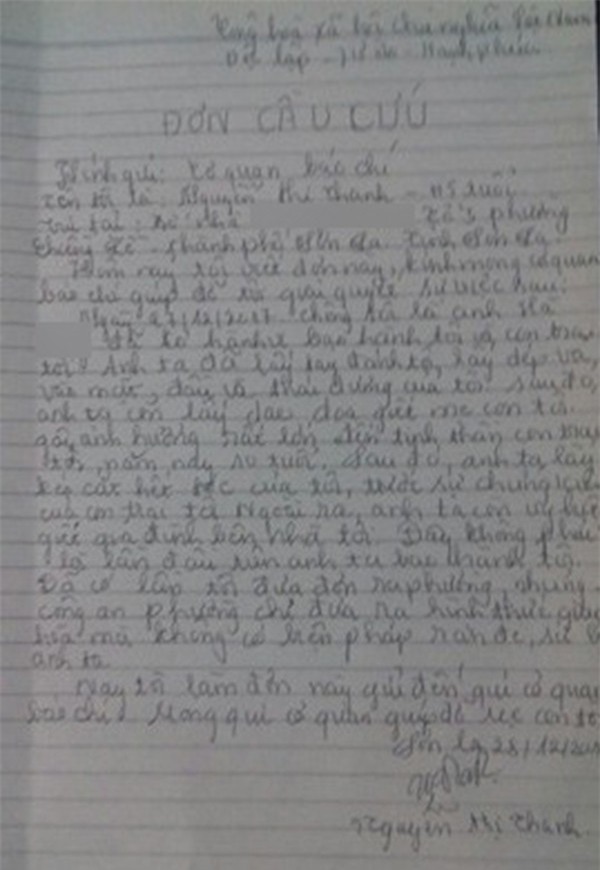 Cộng hoà xã hội chủ nghĩa Việt Nam
Độc lập - Tự do - Hạnh phúc
ĐƠN CẦU CỨU
Kính gửi: Cơ quan báo chí
Tên tôi là: Nguyễn Thị Thanh - tuổi
trú tại: số nhà tổ 5 phường
Chiềng Lề - thành phố Sơn La tỉnh Sơn La.
Hôm nay tôi viết đơn này, kính mong cơ quan
báo chí giúp đỡ tôi giải quyết sự việc sau:
Ngày 27/12/2017 chồng tôi là anh Hà
đã có hành vi bạo hành tôi và con trai
tôi. Anh ta đã lấy tay đánh tôi, lấy dép vả
vào mặt, đầu và thái dương của tôi. Sau đó,
anh ta còn lấy dao dọa giết mẹ con tôi.
gây ảnh hưởng rất lớn đến tinh thần con trai
tôi, năm nay 10 tuổi. Sau đó, anh ta lấy
kéo cắt hết tóc của tôi, trước sự chứng kiến
của con trai tôi. Ngoài ra, anh ta còn
giết gia đình bên nhà tôi. Đây không phải
là lần đầu tiên anh ta bạo hành tôi.
Đã có lần tôi đưa đơn ra phường, nhưng
công an phường chỉ đưa ra hình thức
hoà mà không có biện pháp răn đe, xử
anh ta.
Nay tôi làm đơn này gửi đến quí cơ quan
báo chí. Mong quí cơ quan giúp đỡ mẹ con tôi
Sơn la, 28/12/201
Nguyễn thị thanh